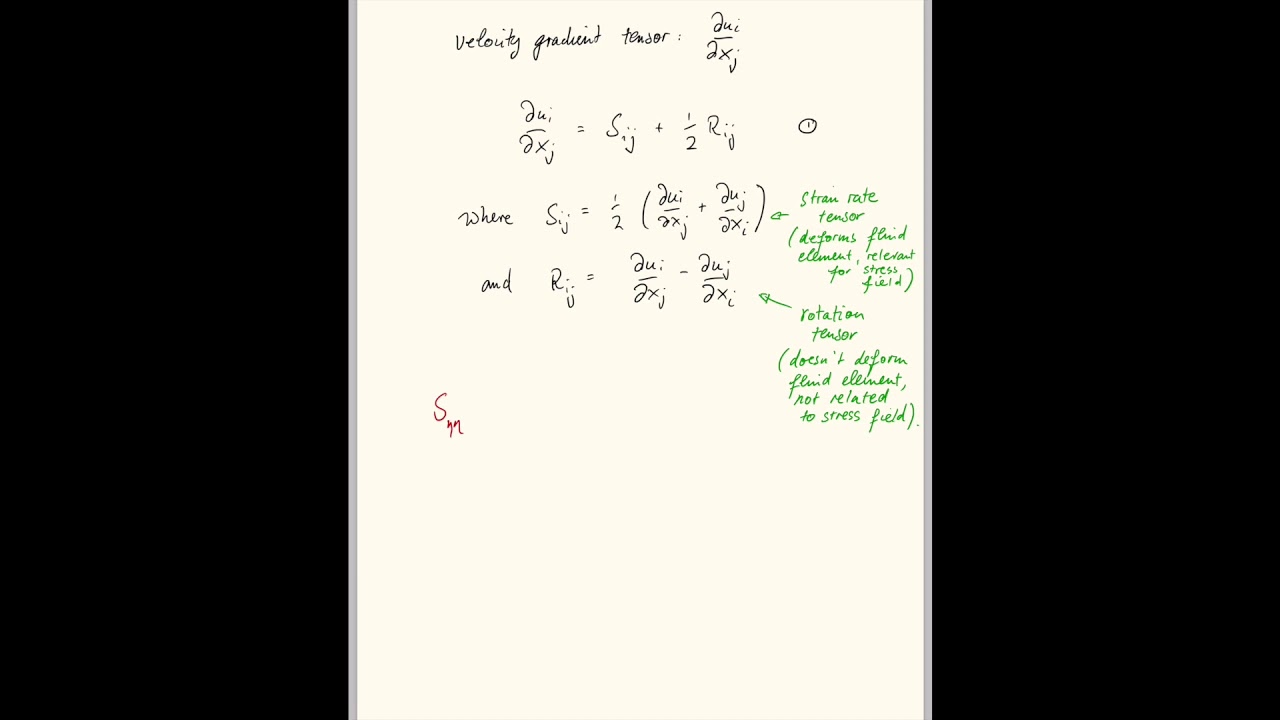 velocity gradient tensor: ∂ui/∂xj
∂ui/∂xj = Sij + 1/2 Rij ①
where Sij = 1/2 (∂ui/∂xj + ∂uj/∂xi)
strain rate
tensor
(deforms fluid
element, relevant
for stress
field)
and Rij = ∂ui/∂xj - ∂uj/∂xi
rotation
tensor
(doesn't deform
fluid element,
not related
to stress field).
Sηη